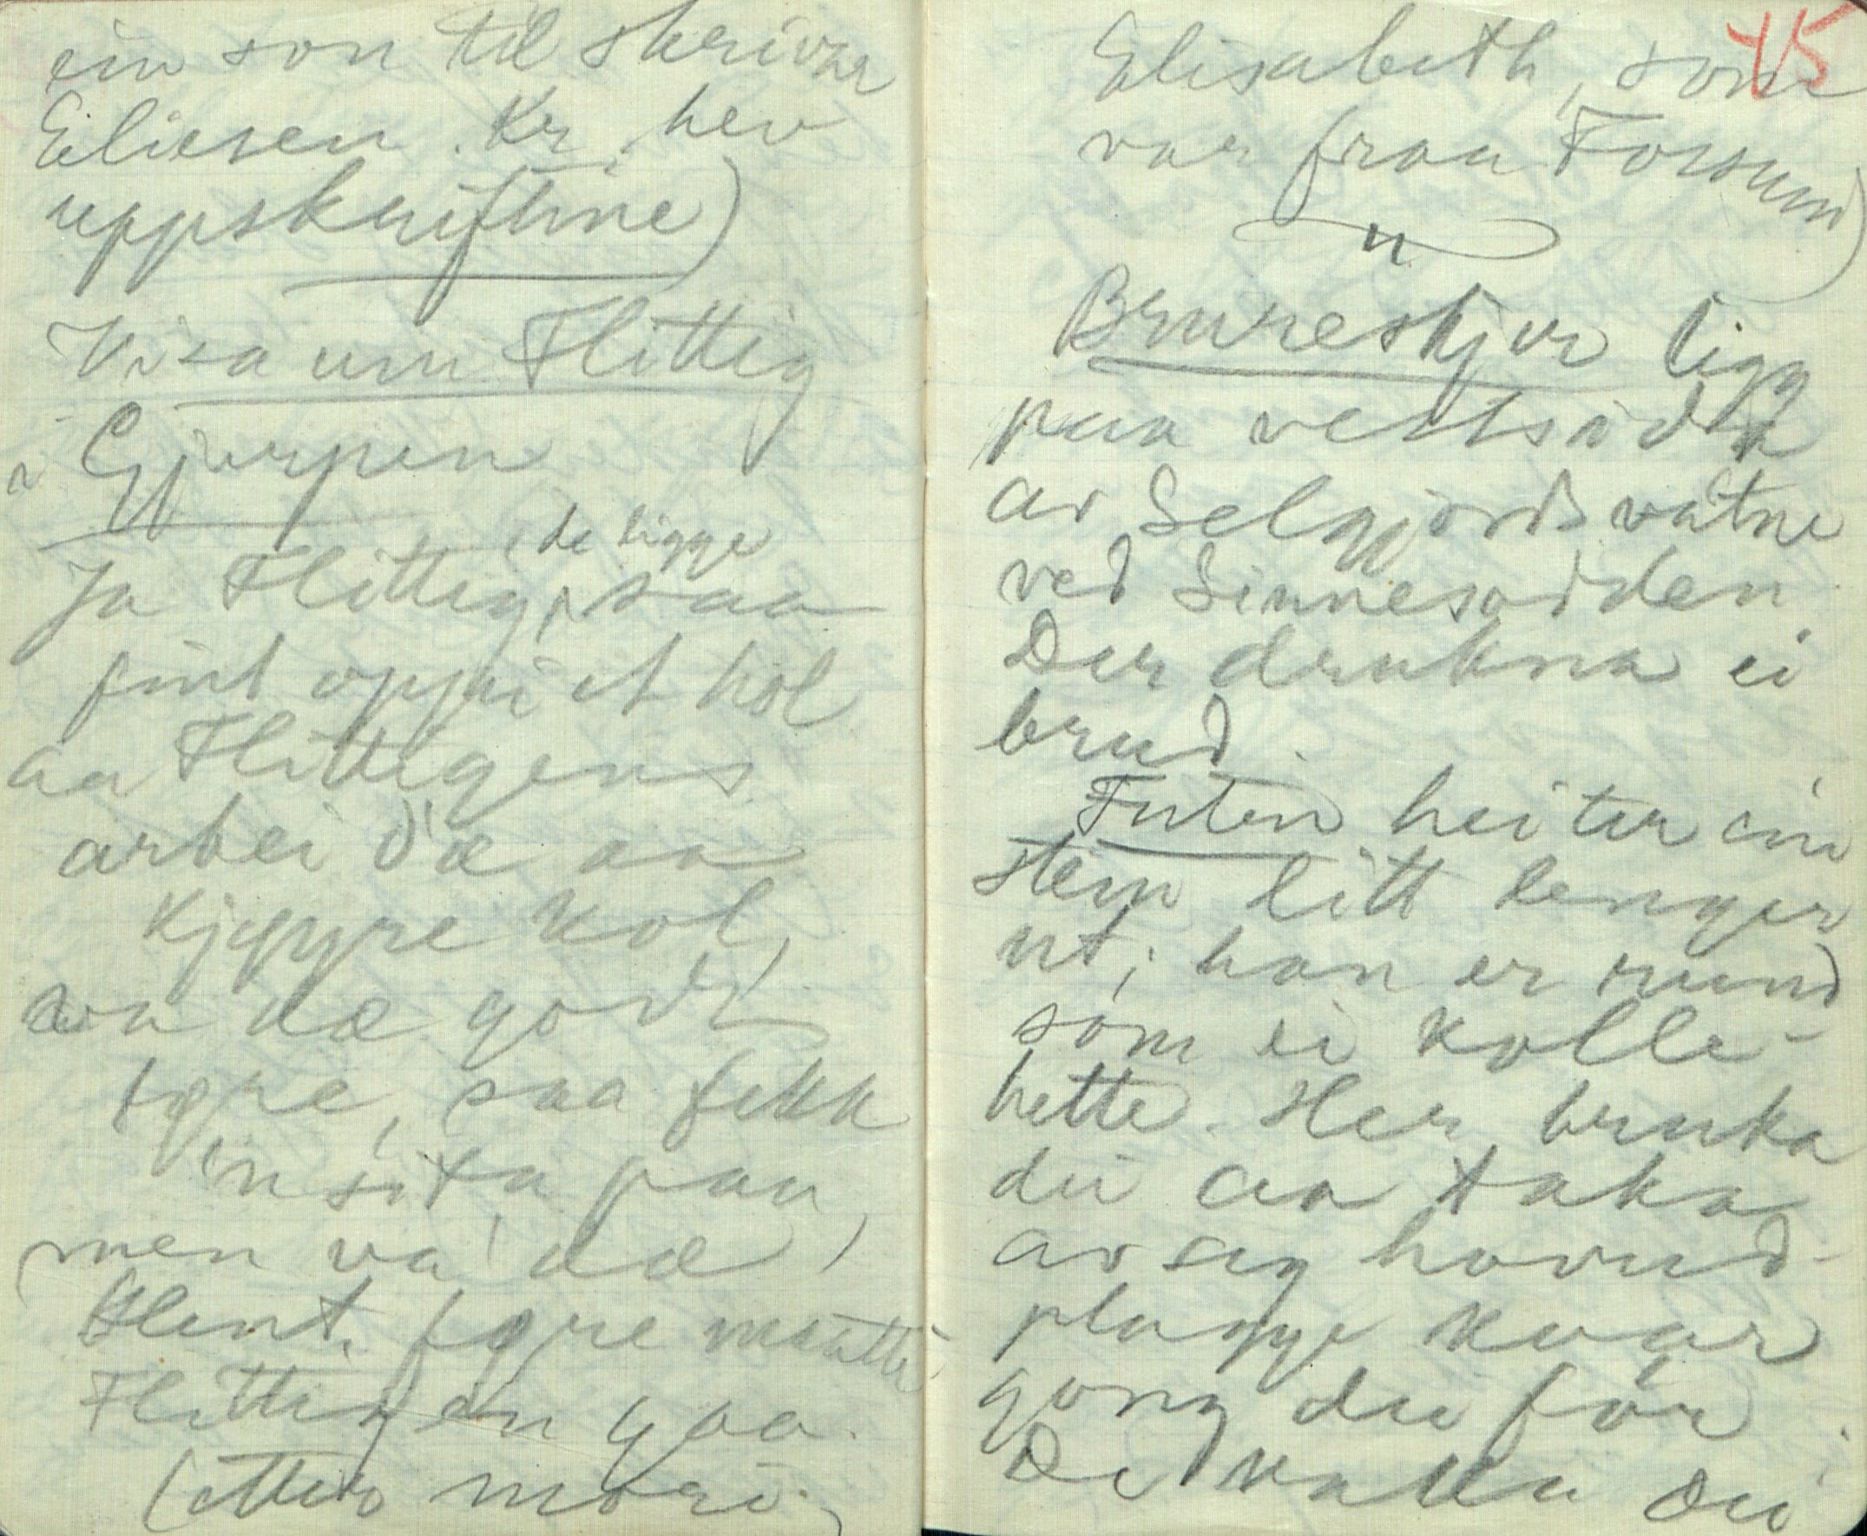 ein son til skrivar
Eliesen. Kr. hev
uppskriftine)
Visa um Flittig
i Gjerpen
Ja Flittig, de ligge saa
fint oppi et høl
aa Flittigens
arbei dæ aa
kjøyre kol,
aa va dæ godt
føre, saa fekk
'n sita paa,
men va' dæ
klent føre maatte
Flittigen gaa.
(etter mori,
45
Elisabeth, som
var fraa Fossum)
"
Brureskjer ligg
paa vestsida
av Seljordsvatne
ved Sinnesodden.
Der drukna ei
brud.
Futen heiter ein
stein litt lenger
ut; han er rund
som ei kolle-
hette. Her bruka
dei aa taka
av seg hovud-
plagge kvar
gong dei før
De kalla dei